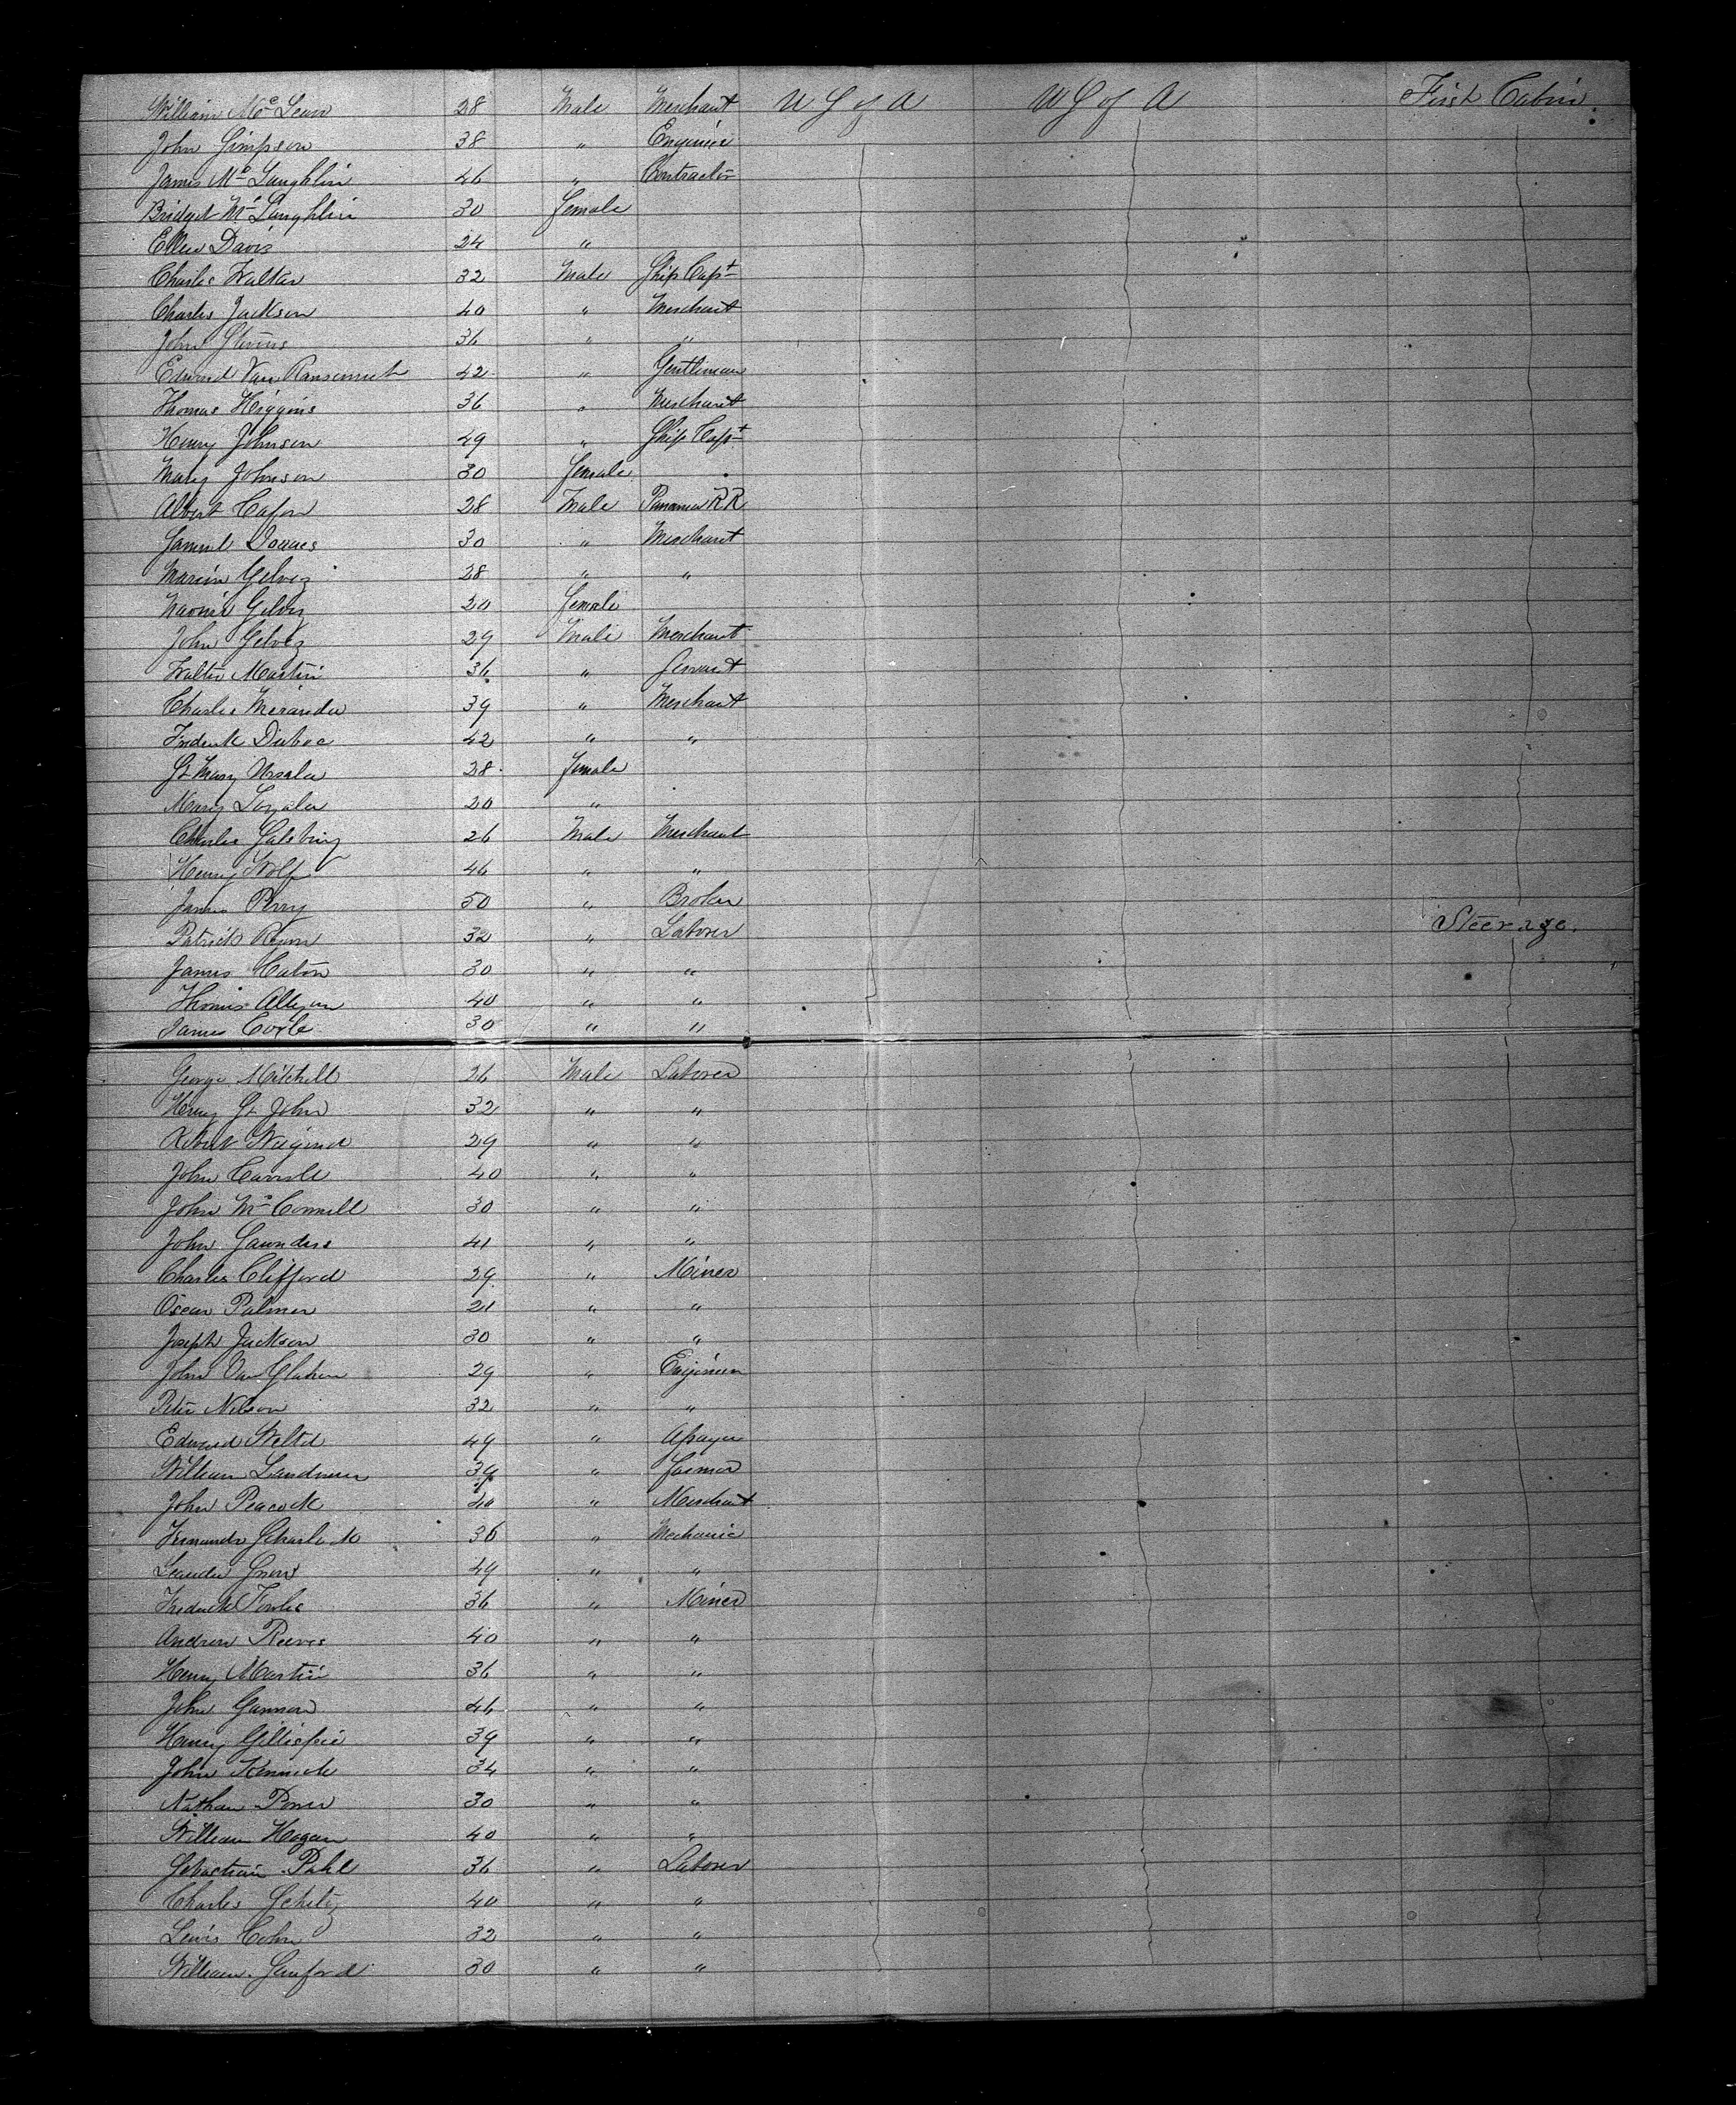 William Mc Lean 28 Male Merchant U S of A U S of A First Cabin
John Simpson 38 " Engineer
James Mc Laughlin 46 " Contractor
Bridget Mc Laughlin 30 Female
Ellen Davis 24 "
Charles Walter 32 Male Ship Capt
Charles Jackson 40 " Merchant
John Stevens 36 " "
Edward Van 42 " Gentleman
Thomas Higgins 36 " Merchant
Henry Johnson 49 " Ship Capt
Mary Johnson 30 Female
Albert 28 Male Panama R R
Samuel 30 " Merchant
Gelvez 28 " "
Gelvez 20 Female
John Gelvez 29 Male Merchant
Walter Martin 36 " Servant
Charles Miranda 39 " Merchant
Frederik Duboc 42 " "
St Mary Ursala 28 Female
Mary Loyala 20 "
Charles 26 Male Merchant
Henry Wolf 46 " "
James Perry 50 " Broker
Patrick 32 " Laborer Steerage.
James Caton 30 " "
Thomas 40 " "
James 30 " "
George Mitchell 26 Male Laborer
Henry St John 32 " "
Robert 29 " "
John Carroll 40 " "
John Mc Connell 30 " "
John Saunders 41 " "
Charles Clifford 29 " Miner
Oscar Palmer 21 " "
Joseph Jackson 30 " "
John Van 29 " Engineer
Peter Nelson 32 " "
Edward 49 " Assayer
William Landman 39 " Farmer
John Peacock 40 " Merchant
36 " Mechanic
Leander Snow 49 " "
Frederick 36 " Miner
Andrew Reeves 40 " "
Henry Martin 36 " "
John Gannon 46 " "
Henry Gillispie 39 " "
John 34 " "
Nathan 30 " "
William Hogan 40 " "
Sebastian Pahl 36 " Laborer
Charles 40 " "
Lewis Cohn 32 " "
William Sanford 30 " "